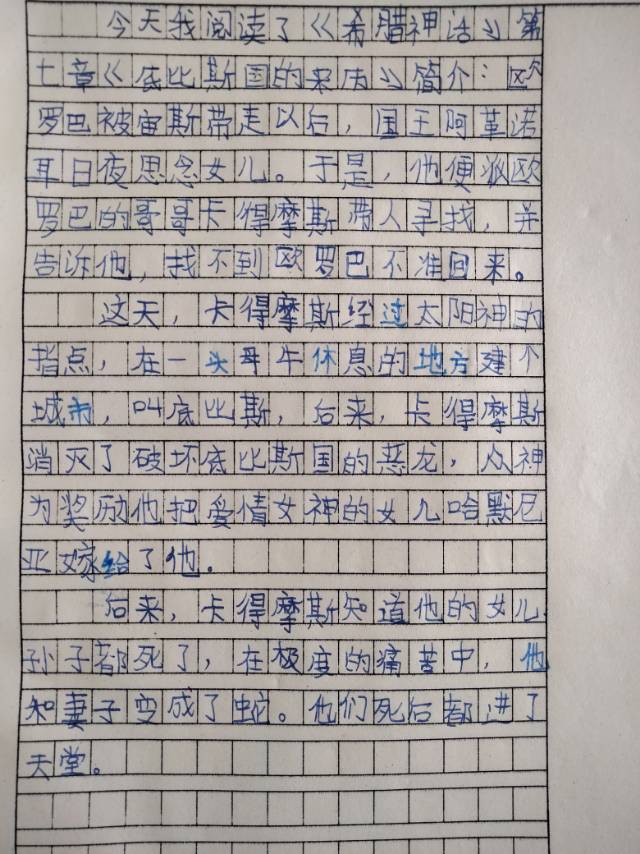 今天我阅读了《希腊神话》第
七章《底比斯国的来历》简介：欧
罗巴被宙斯带走以后，国王阿革诺
耳日夜思念女儿。于是，他便派欧
罗巴的哥哥卡得摩斯带人寻找，并
告诉他，找不到欧罗巴不准回来。
这天，卡得摩斯经过太阳神的
指点，在一头母牛休息的地方建个
城市，叫底比斯，后来，卡得摩斯
消灭了破坏底比斯国的恶龙，众神
为奖励他把爱情女神的女儿哈默尼
亚嫁给了他．
后来，卡得摩斯知道他的女儿．
孙子都死了，在极度的痛苦中，他
和妻子变成了蛇。他们死后都进了
天堂。